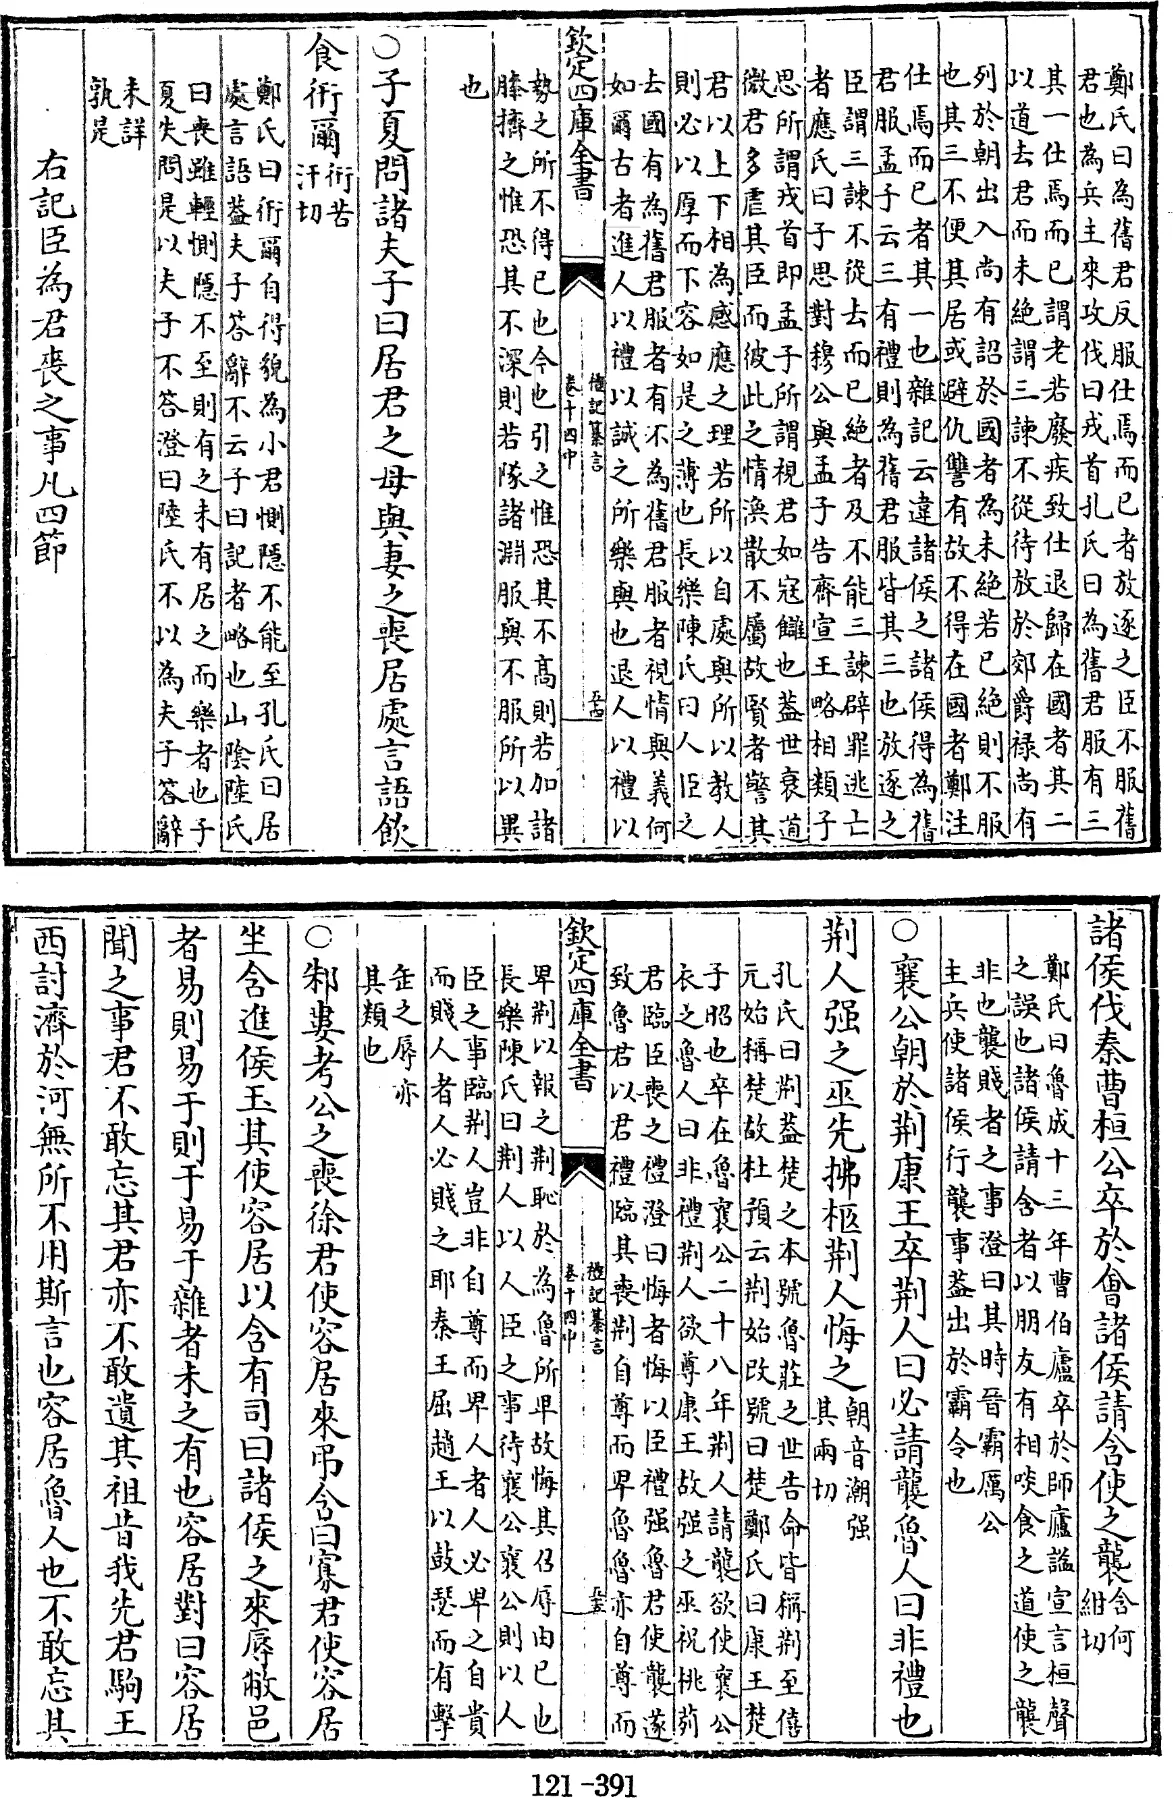 鄭氏曰為舊君反服仕焉而已者放逐之臣不服舊
君也為兵主來攻伐曰戎首孔氏曰為舊君服有三
其一仕焉而已謂老若廢疾致仕退歸在國者其二
以道去君而未絶謂三諫不從待放於郊爵禄尚有
列於朝出入尚有詔於國者為未絶若已絶則不服
也其三不便其居或避仇讐有故不得在國者鄭注
仕焉而已者其一也雜記云違諸侯之諸侯得為舊
君服孟子云三有禮則為舊君服皆其三也放逐之
臣謂三諫不從去而已絶者及不能三諫辟罪逃亡
者應氏曰子思對穆公與孟子告齊宣王略相類子
思所謂戎首即孟子所謂視君如寇讎也蓋世衰道
微君多虐其臣而彼此之情渙散不屬故賢者警其
君以上下相為感應之理若所以自處與所以教人
則必以厚而下容如是之薄也長樂陳氏曰人臣之
去國有為舊君服者有不為舊君服者視情與義何
如爾古者進人以禮以誠之所樂與也退人以禮以
欽定四庫全書
禮記纂言
卷十四中
五十四
勢之所不得已也今也引之惟恐其不髙則若加諸
膝擠之惟恐其不深則若隊諸淵服與不服所以異
也
○子夏問諸夫子曰居君之母與妻之喪居處言語飲
食衎爾衎苦
汗切
鄭氏曰衎爾自得貌為小君惻隱不能至孔氏曰居
處言語蓋夫子荅辭不云子曰記者略也山陰陸氏
曰喪雖輕惻隱不至則有之未有居之而樂者也子
夏失問是以夫子不荅澄曰陸氏不以為夫子荅辭
未詳
孰是
右記臣為君喪之事凡四節
諸侯伐秦曹桓公卒於會諸侯請含使之襲含何
紺切
鄭氏曰魯成十三年曹伯廬卒於師廬謚宣言桓聲
之誤也諸侯請含者以朋友有相啖食之道使之襲
非也襲賤者之事澄曰其時晉霸厲公
主兵使諸侯行襲事蓋出於霸令也
○襄公朝於荆康王卒荆人曰必請襲魯人曰非禮也
荆人强之巫先拂柩荆人悔之朝音潮强
其兩切
孔氏曰荆蓋楚之本號魯莊之世告命皆稱荆至僖
元始稱楚故杜預云荆始改號曰楚鄭氏曰康王楚
子昭也卒在魯襄公二十八年荆人請襲欲使襄公
衣之魯人曰非禮荆人欲尊康王故强之巫祝桃茢
君臨臣喪之禮澄曰悔者悔以臣禮强魯君使襲遂
致魯君以君禮臨其喪荆自尊而卑魯魯亦自尊而
欽定四庫全書
禮記纂言
卷十四中
五十五
卑荆以報之荆恥於為魯所卑故悔其召辱由已也
長樂陳氏曰荆人以人臣之事待襄公襄公則以人
臣之事臨荆人豈非自尊而卑人者人必卑之自貴
而賤人者人必賤之耶秦王屈趙王以鼓瑟而有擊
缶之辱亦
其類也
○邾婁考公之喪徐君使容居來弔含曰寡君使容居
坐含進侯玉其使容居以含有司曰諸侯之來辱敝邑
者易則易于則于易于雜者未之有也容居對曰容居
聞之事君不敢忘其君亦不敢遺其祖昔我先君駒王
西討濟於河無所不用斯言也容居魯人也不敢忘其
121-391